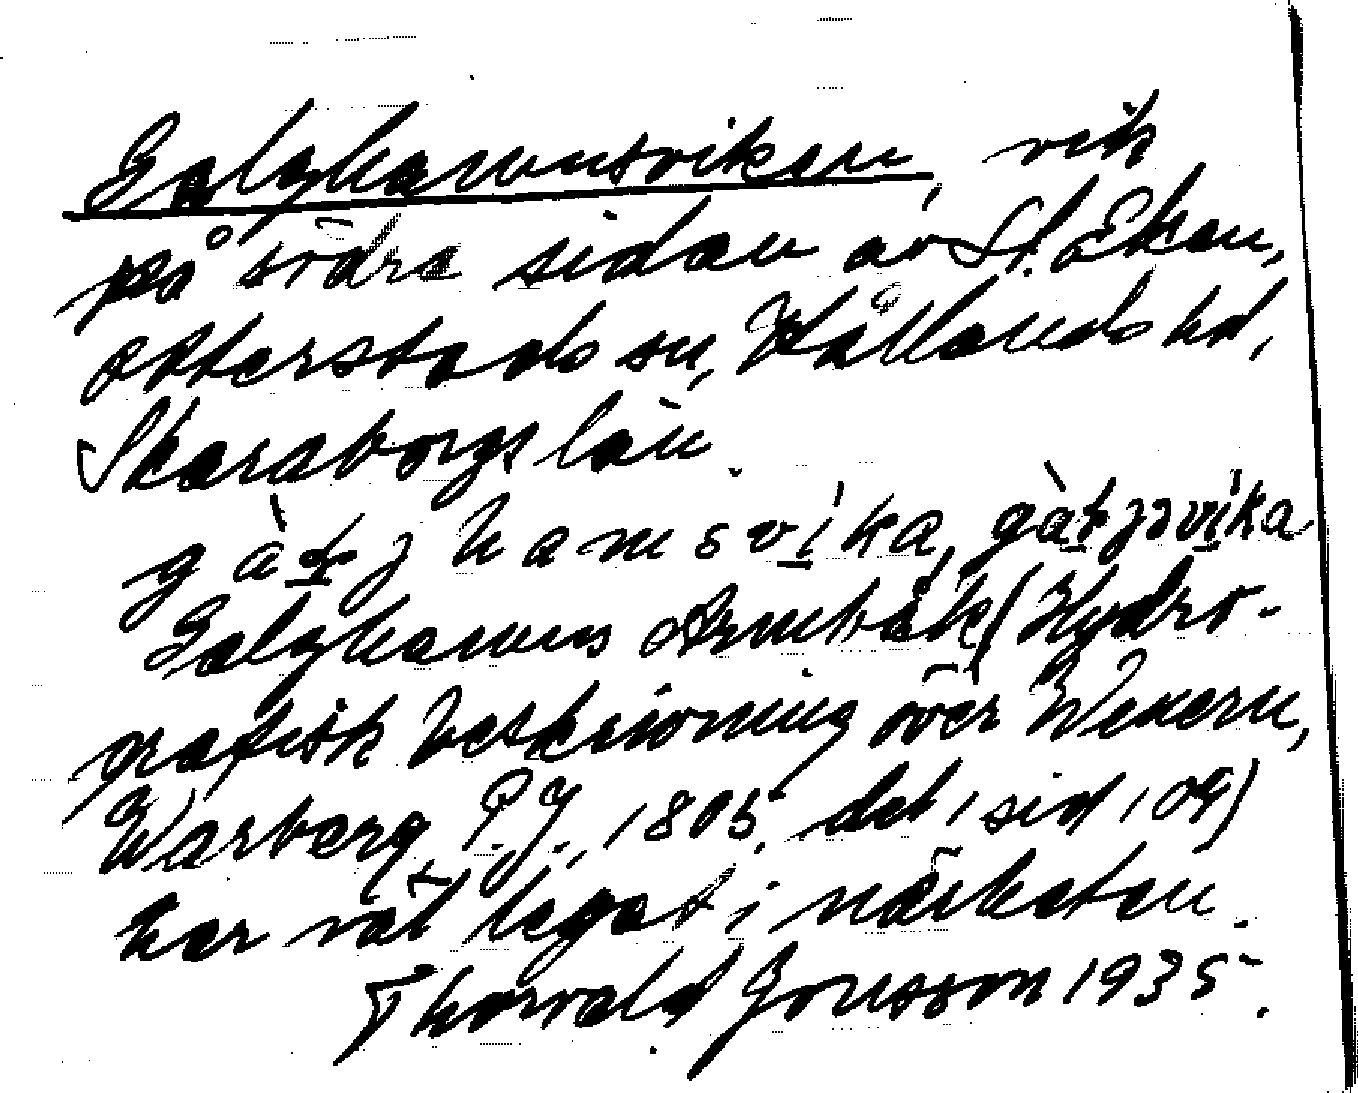 Galghamnsviken, vik
på södra sidan av St. Eken,
Otterstads sn, Kållands hd,
Skaraborgs län.
g à ł j h a m s v í k a, gàłjəvíka
Galghamns (Hydro-
grafisk beskrivning över Wenern,
Warberg, P. J., 1805, del 1 sid 109)
har väl legat i närheten.
Thorvald Jonsson 1935.